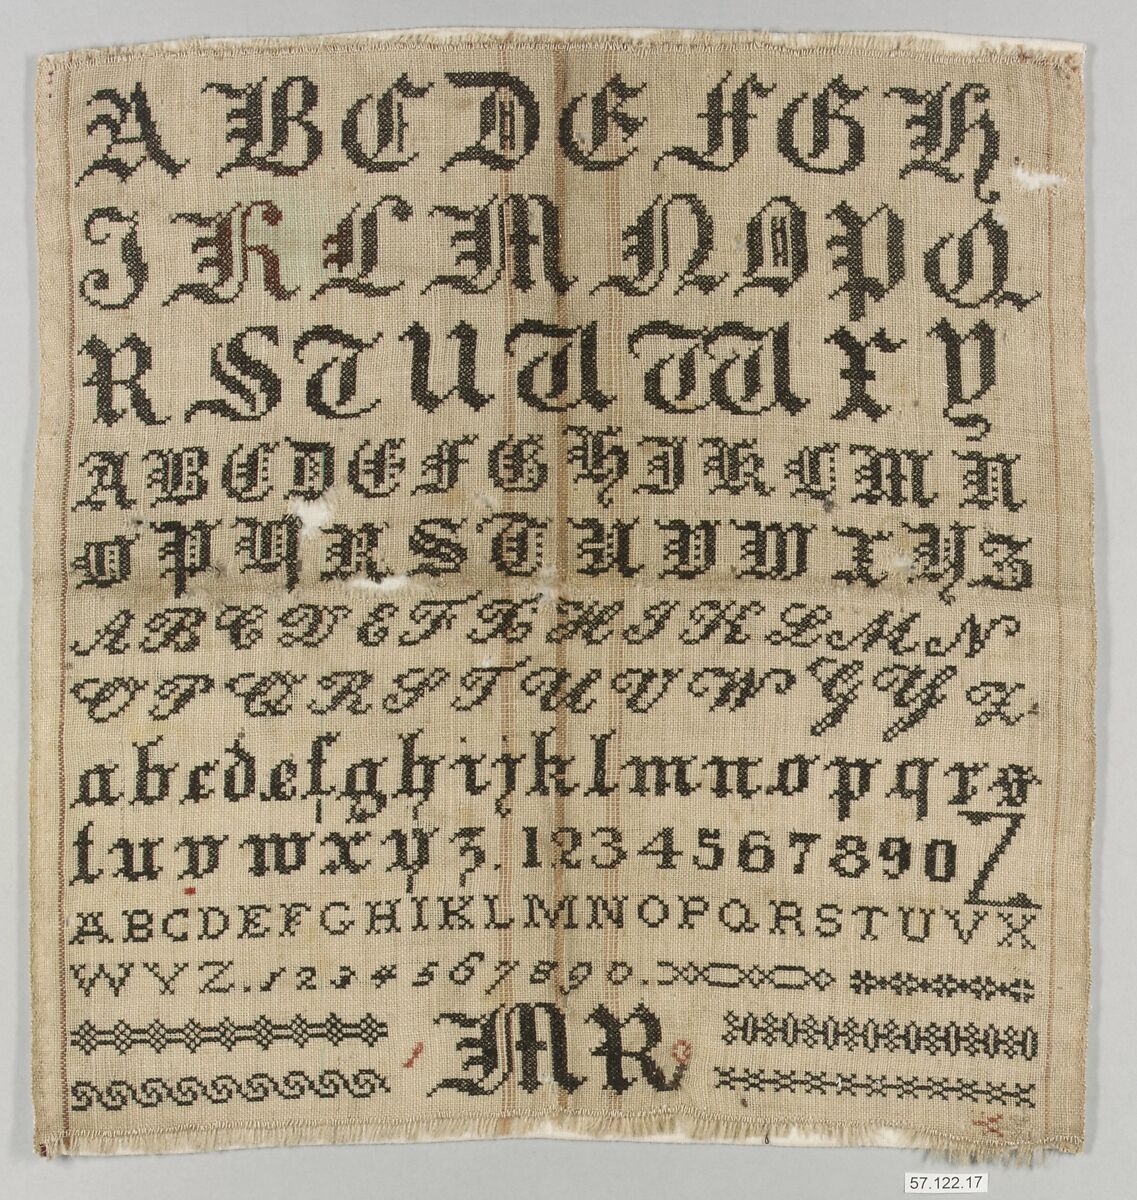 A B C D E F G H
I K L M N O P Q
R S T U V W X Y
A B C D E F G H I K L M N
O P Q R S T U V W X Y Z
A B C D E F G H I K L M N
O P Q R S T U V W X Y Z
a b c d e f g h i j k l m n o p q r s
t u v w x y z . 1 2 3 4 5 6 7 8 9 0 Z
A B C D E F G H I K L M N O P Q R S T U V X
W Y Z . . 1 2 3 4 5 6 7 8 9 0 .
M R
57.122.17